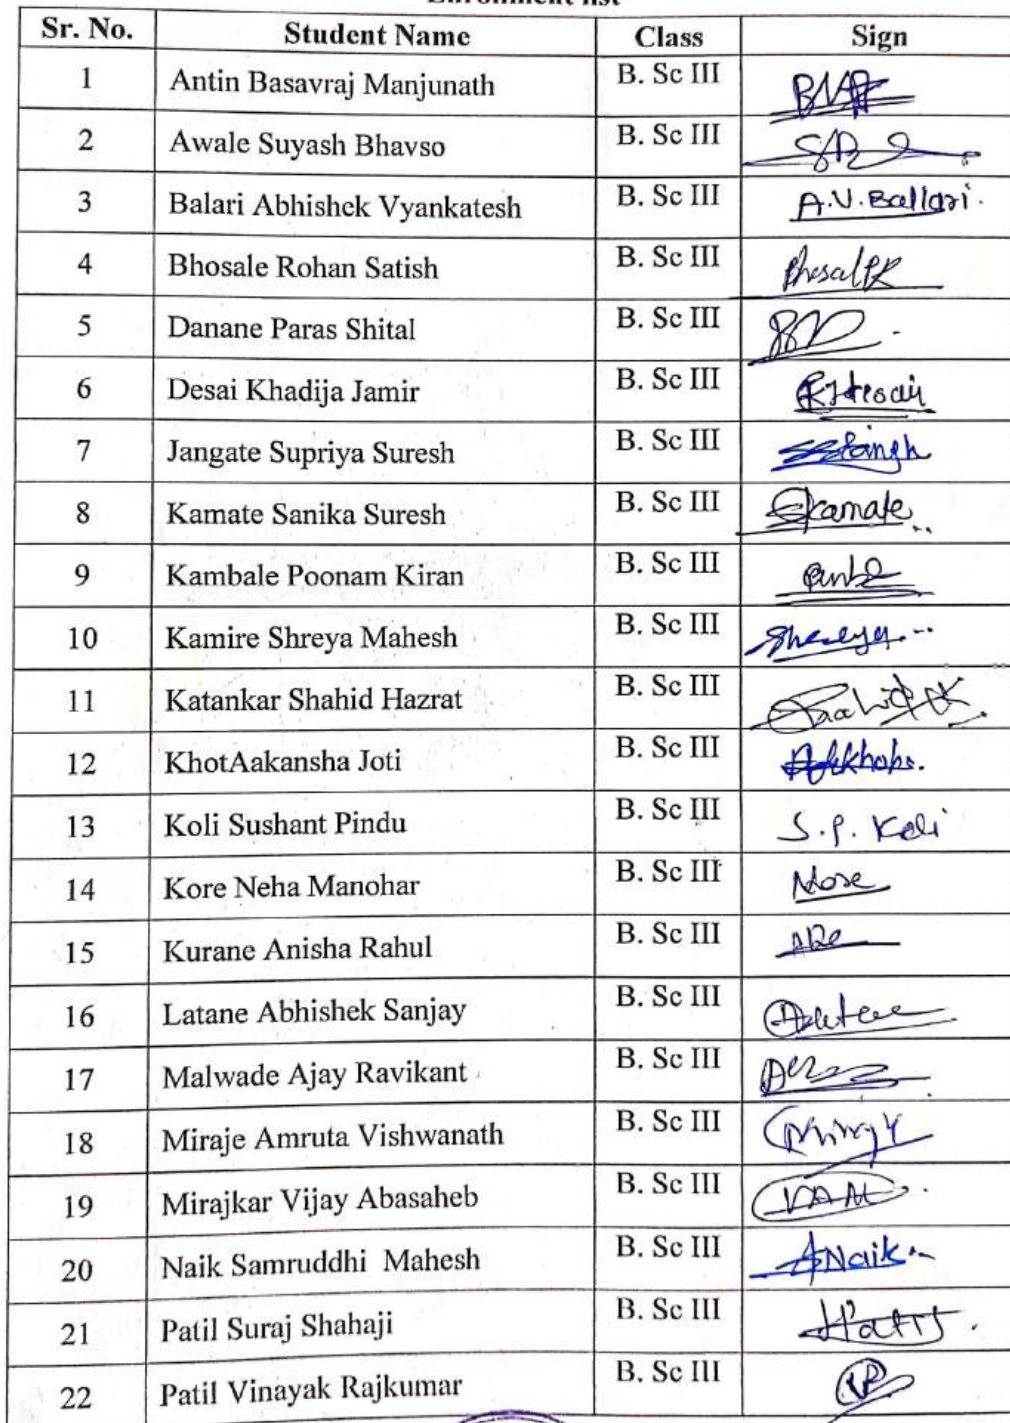 Enrollment list
Sr. No. Student Name Class Sign
1 Antin Basavraj Manjunath B. Sc III
2 Awale Suyash Bhavso B. Sc III
3 Balari Abhishek Vyankatesh B. Sc III A.V. Ballari.
4 Bhosale Rohan Satish B. Sc III
5 Danane Paras Shital B. Sc III
6 Desai Khadija Jamir B. Sc III
7 Jangate Supriya Suresh B. Sc III
8 Kamate Sanika Suresh B. Sc III Skamate
9 Kambale Poonam Kiran B. Sc III
10 Kamire Shreya Mahesh B. Sc III
11 Katankar Shahid Hazrat B. Sc III
12 KhotAakansha Joti B. Sc III
13 Koli Sushant Pindu B. Sc III S.P. Koli
14 Kore Neha Manohar B. Sc III
15 Kurane Anisha Rahul B. Sc III
16 Latane Abhishek Sanjay B. Sc III
17 Malwade Ajay Ravikant B. Sc III
18 Miraje Amruta Vishwanath B. Sc III
19 Mirajkar Vijay Abasaheb B. Sc III VAM
20 Naik Samruddhi Mahesh B. Sc III SNaik
21 Patil Suraj Shahaji B. Sc III
22 Patil Vinayak Rajkumar B. Sc III